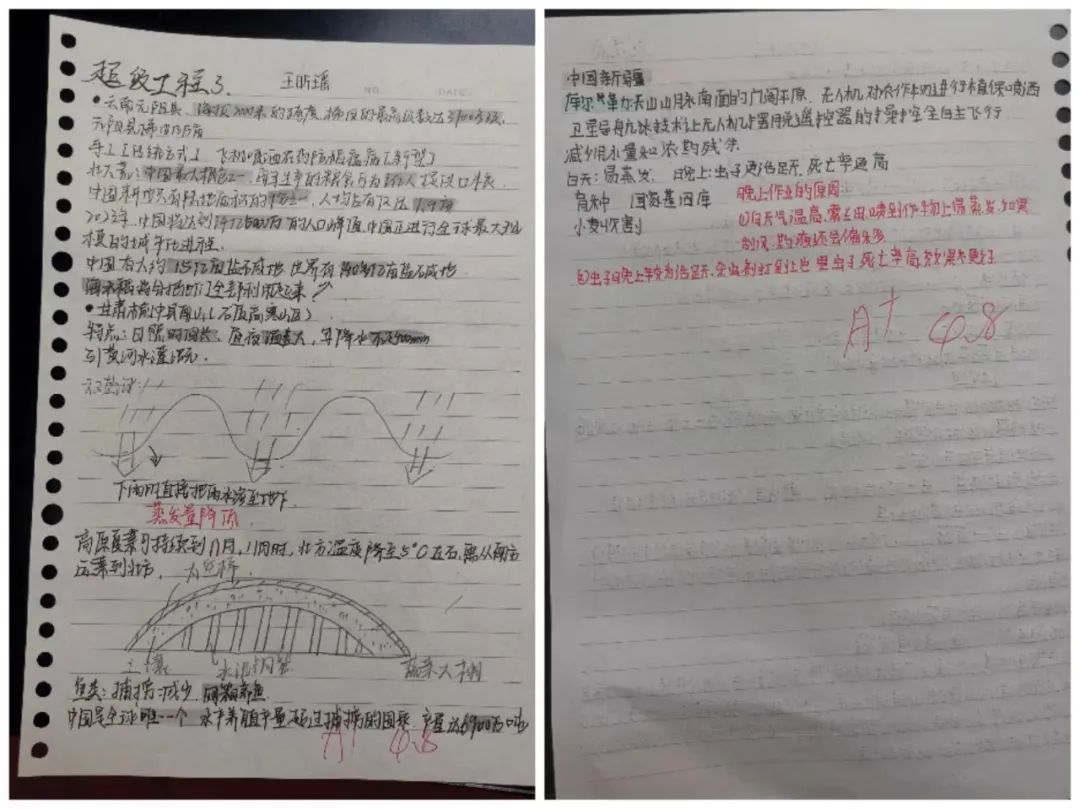 超级工程3. 王昕瑶
NO. DATE.
•云南元阳县 海拔2000米的梯度,梯田的最高级数达3700多级,
元阳县梯田
手工[传统方式] 飞机喷洒农药防稻瘟病[新型]
北大荒:中国最大粮仓之一,每年生产的粮食可为 人提供口粮.
中国耕地只有陆地面积的 ,人均占有仅达1.4亩
中国将达到 的人口峰值,中国正进行全球最大规
模的城市化进程.
中国有大约15亿亩盐碱地 世界有 亿亩盐碱地
海水稻将会把它们全部利用起来
•甘肃榆中县 (石质高寒山区)
特点:日照时间长,昼夜温差大,年降水不足400mm
引黄河水灌溉.
下雨时直接把雨水渗至地下
蒸发量降低
高原夏菜可持续到11月,11月时,北方温度降至5℃左右,需从南方
运菜到北方,
土壤 水泥钢管 蔬菜大棚
鱼类:捕捞减少 网箱养鱼
中国是全球唯一一个 水产养殖产量超过捕捞的国家,产量达6900万吨
A+ 9.8
中国新疆
库尔 天山山脉南面的 平原. 无人机对农作物进行植保喷洒
卫星导航 技术让无人机摆脱遥控器的操控全自主飞行
减少用水量和农药残余
白天:易蒸发. 晚上:虫子更活跃,死亡率高
育种 国家基因库
小麦收割
晚上作业的原因:
①白天气温高,雾 喷到作物上易蒸发,如果
刮风,药液还会偏
②虫子晚上较为活跃,杀虫剂打到上也 虫子死亡率高,效果更好
A+ 9.8